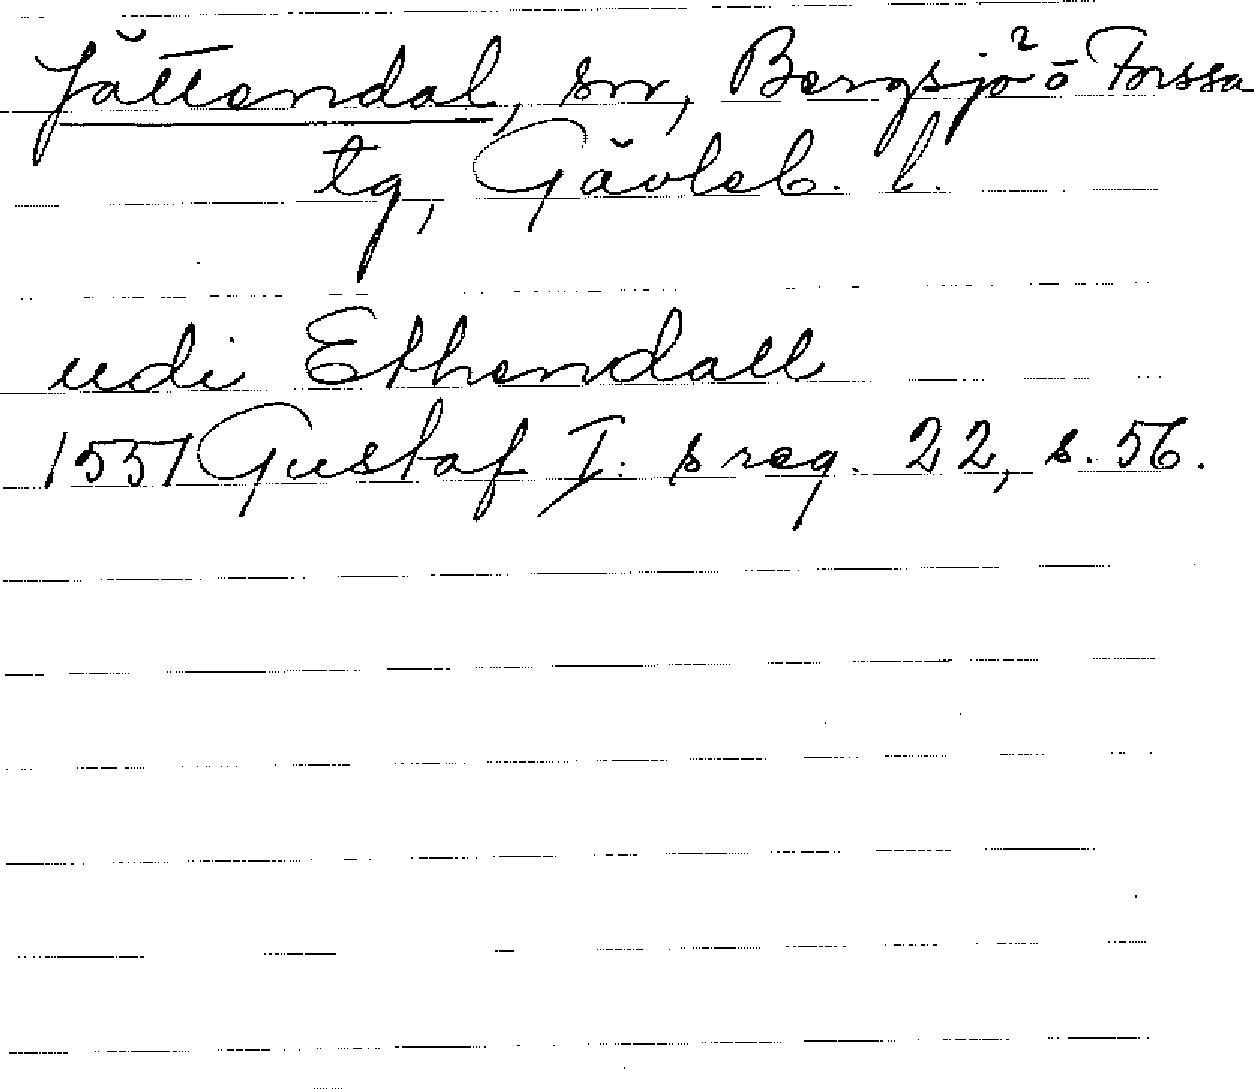 Jättendal, sn, Bergsjö o Forssa
tg, Gävleb. l.
udi Ethendall
1551 Gustaf I:s reg. 22, s. 56.